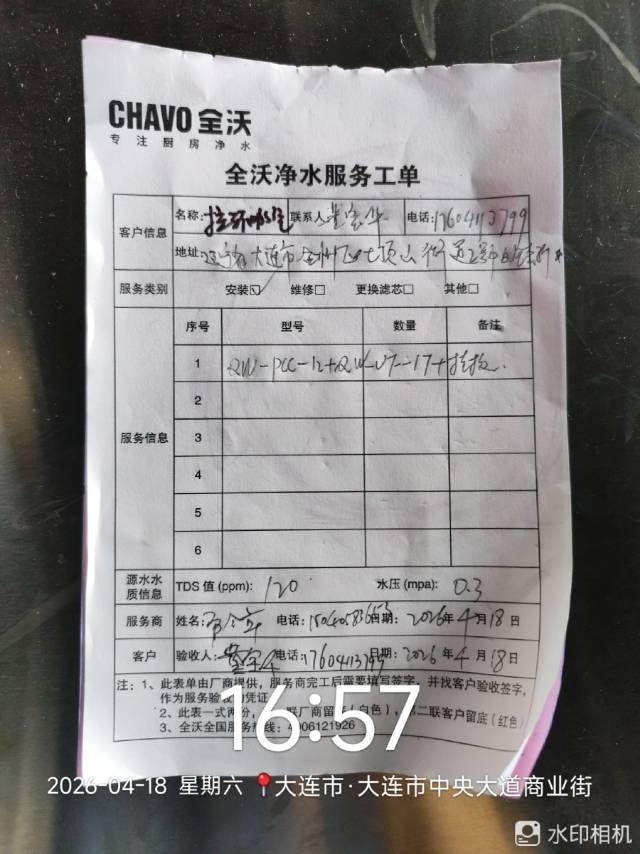 CHAVO 全沃
专注厨房净水
全沃净水服务工单
客户信息 名称: 联系人 电话:17604113799
地址: 大连市金州区七顶山街道
服务类别 安装☑ 维修□ 更换滤芯□ 其他□
服务信息 序号 型号 数量 备注
1 QW-PCC-12+QW-U7-17+挂板.
2
3
4
5
6
源水水质信息 TDS 值 (ppm): 120 水压 (mpa): 0.3
服务商 姓名: 电话: 日期: 2026年4月18日
客户 验收人: 电话:17604113799 日期: 2026年4月18日
注: 1、此表单由厂商提供，服务商完工后需要填写签字，并找客户验收签字，
作为服务验收的凭证
2、此表一式两份， 联厂商留底(白色)，第二联客户留底(红色)
3、全沃全国服务热线: 4006121926
16:57
2026-04-18 星期六 大连市·大连市中央大道商业街
水印相机